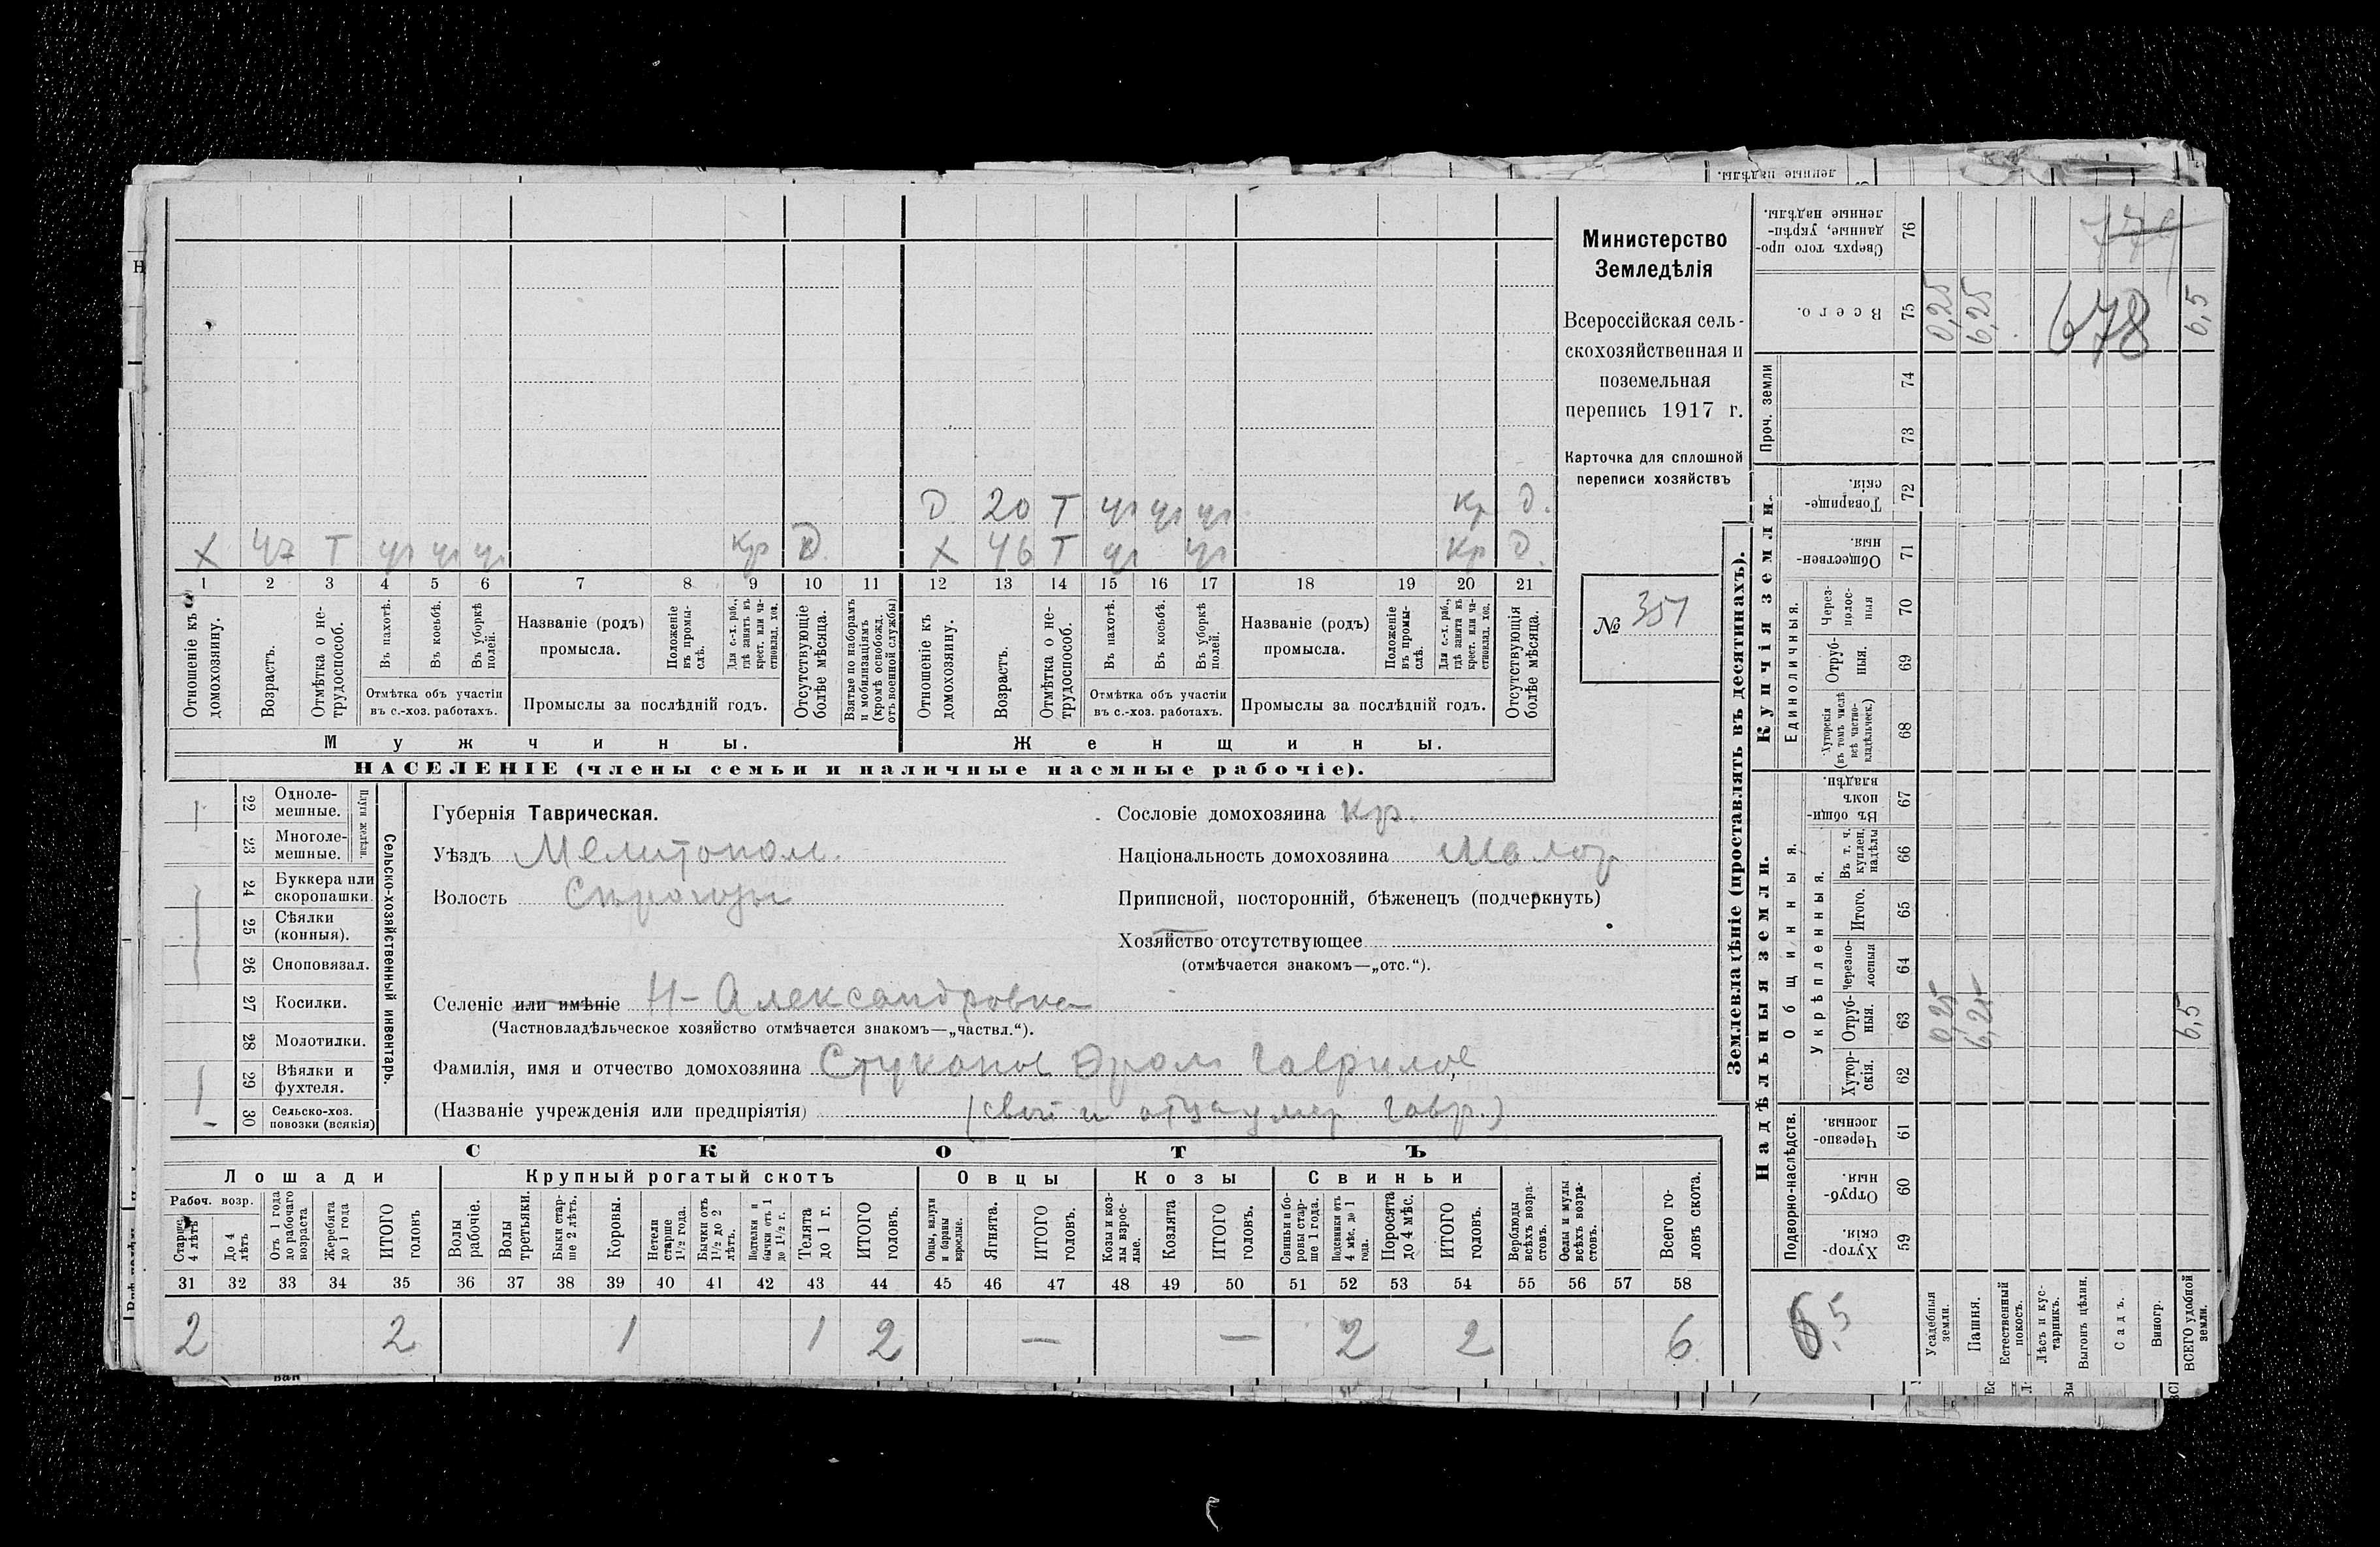 Министерство
Земледѣлія
Всероссійская сель-
скохозяйственная и
поземельная
перепись 1917 г.
Карточка для сплошной
переписи хозяйствъ
№ 351
D 20 Т уч уч уч Кр D.
Х 47 Т уч уч уч Кр D. Х 46 Т уч уч Кр D
1 2 3 4 5 6 7 8 9 10 11 12 13 14 15 16 17 18 19 20 21
Отношеніе къ домохозяину.
Возрастъ.
Отмѣтка о не-трудоспособ.
Въ пахотѣ.
Въ косьбѣ.
Въ уборкѣ полей.
Отмѣтка объ участіи
въ с.-хоз. работахъ.
Названіе (родъ)
промысла.
Положеніе въ промы-слѣ.
Для с.-х. раб., гдѣ занятъ въ крест. или ча-стновлад. хоз.
Промыслы за послѣдній годъ.
Отсутствующіе болѣе мѣсяца.
Взятые по наборамъ и мобилизаціямъ (кромѣ освобожд. отъ военной службы)
Отношеніе къ домохозяину.
Возрастъ.
Отмѣтка о не-трудоспособ.
Въ пахотѣ.
Въ косьбѣ.
Въ уборкѣ полей.
Отмѣтка объ участіи
въ с.-хоз. работахъ.
Названіе (родъ)
промысла.
Положеніе въ промы-слѣ.
Для с.-х. раб., гдѣ занята въ крест. или ча-стновлад. хоз.
Промыслы за послѣдній годъ.
Отсутствующія болѣе мѣсяца.
Мужчины. Женщины.
НАСЕЛЕНІЕ (члены семьи и наличные наемные рабочіе).
Сельско-хозяйственный инвентарь.
Плуги желѣзн.
22 Одноле-мешные. 1
23 Многоле-мешные.
24 Буккера или скоропашки.
25 Сѣялки (конныя).
26 Сноповязал.
27 Косилки.
28 Молотилки.
29 Вѣялки и фухтеля.
30 Сельско-хоз. повозки (всякія)
Губернія Таврическая.
Уѣздъ Мелитопол.
Волость Сѣрогозы
Селеніе или имѣніе Н-Александровка
(Частновладѣльческое хозяйство отмѣчается знакомъ—„частвл.“).
Фамилія, имя и отчество домохозяина Гаврилов
(Названіе учрежденія или предпріятія)
Сословіе домохозяина Кр.
Національность домохозяина Малор
Приписной, посторонній, бѣженецъ (подчеркнуть)
Хозяйство отсутствующее
(отмѣчается знакомъ—„отс.“).
СКОТЪ
Лошади Крупный рогатый скотъ Овцы Козы Свиньи
Рабоч. возр.
Старше 4 лѣтъ
До 4 лѣтъ
Отъ 1 года до рабочаго возраста
Жеребята до 1 года
ИТОГО головъ
Волы рабочіе.
Волы третьяки.
Быки стар-ше 2 лѣтъ.
Коровы.
Нетели старше 1½ года.
Бычки отъ 1½ до 2 лѣтъ.
Подтелки и бычки отъ 1 до 1½ г.
Телята до 1 г.
ИТОГО головъ.
Овцы, валухи и бараны взрослые.
Ягнята.
ИТОГО головъ.
Козы и коз-лы взрос-лые.
Козлята
ИТОГО головъ.
Свиньи и бо-ровы стар-ше 1 года.
Подсвинки отъ 4 мѣс. до 1 года.
Поросята до 4 мѣс.
ИТОГО головъ.
Верблюды всѣхъ возра-стовъ.
Ослы и мулы всѣхъ возра-стовъ.
Всего го-ловъ скота.
31 32 33 34 35 36 37 38 39 40 41 42 43 44 45 46 47 48 49 50 51 52 53 54 55 56 57 58
2 2 1 1 2 — — 2 2 6
Землевладѣніе (проставлять въ десятинахъ).
Надѣльныя земли. Купчія земли. Проч. земли
Подворно-наслѣдств.
Общинныя.
Укрѣпленныя.
Единоличныя.
59 Хутор-скія.
60 Отруб-ныя.
61 Черезпо-лосныя.
62 Хутор-скія.
63 Отруб-ныя. 0,25 6,25 6,5
64 Черезпо-лосныя
65 Итого.
66 Въ т. ч. куплен. надѣлы
67 Въ общин-номъ владѣн.
68 Хуторскія (въ томъ числѣ всѣ частно-владѣльческ.)
69 Отруб-ныя.
70 Через-полос-ныя
71 Обществен-ныя.
72 Товарище-скія.
73
74
75 Всего. 0,25 6,25 6,5
76 Сверхъ того про-данные, укрѣп-ленные надѣлы.
678
6.5
Усадебныя земли.
Пашня.
Естественный покосъ.
Лѣсъ и кус-тарникъ.
Выгонъ цѣлин.
Садъ.
Виногр.
ВСЕГО удобной земли.